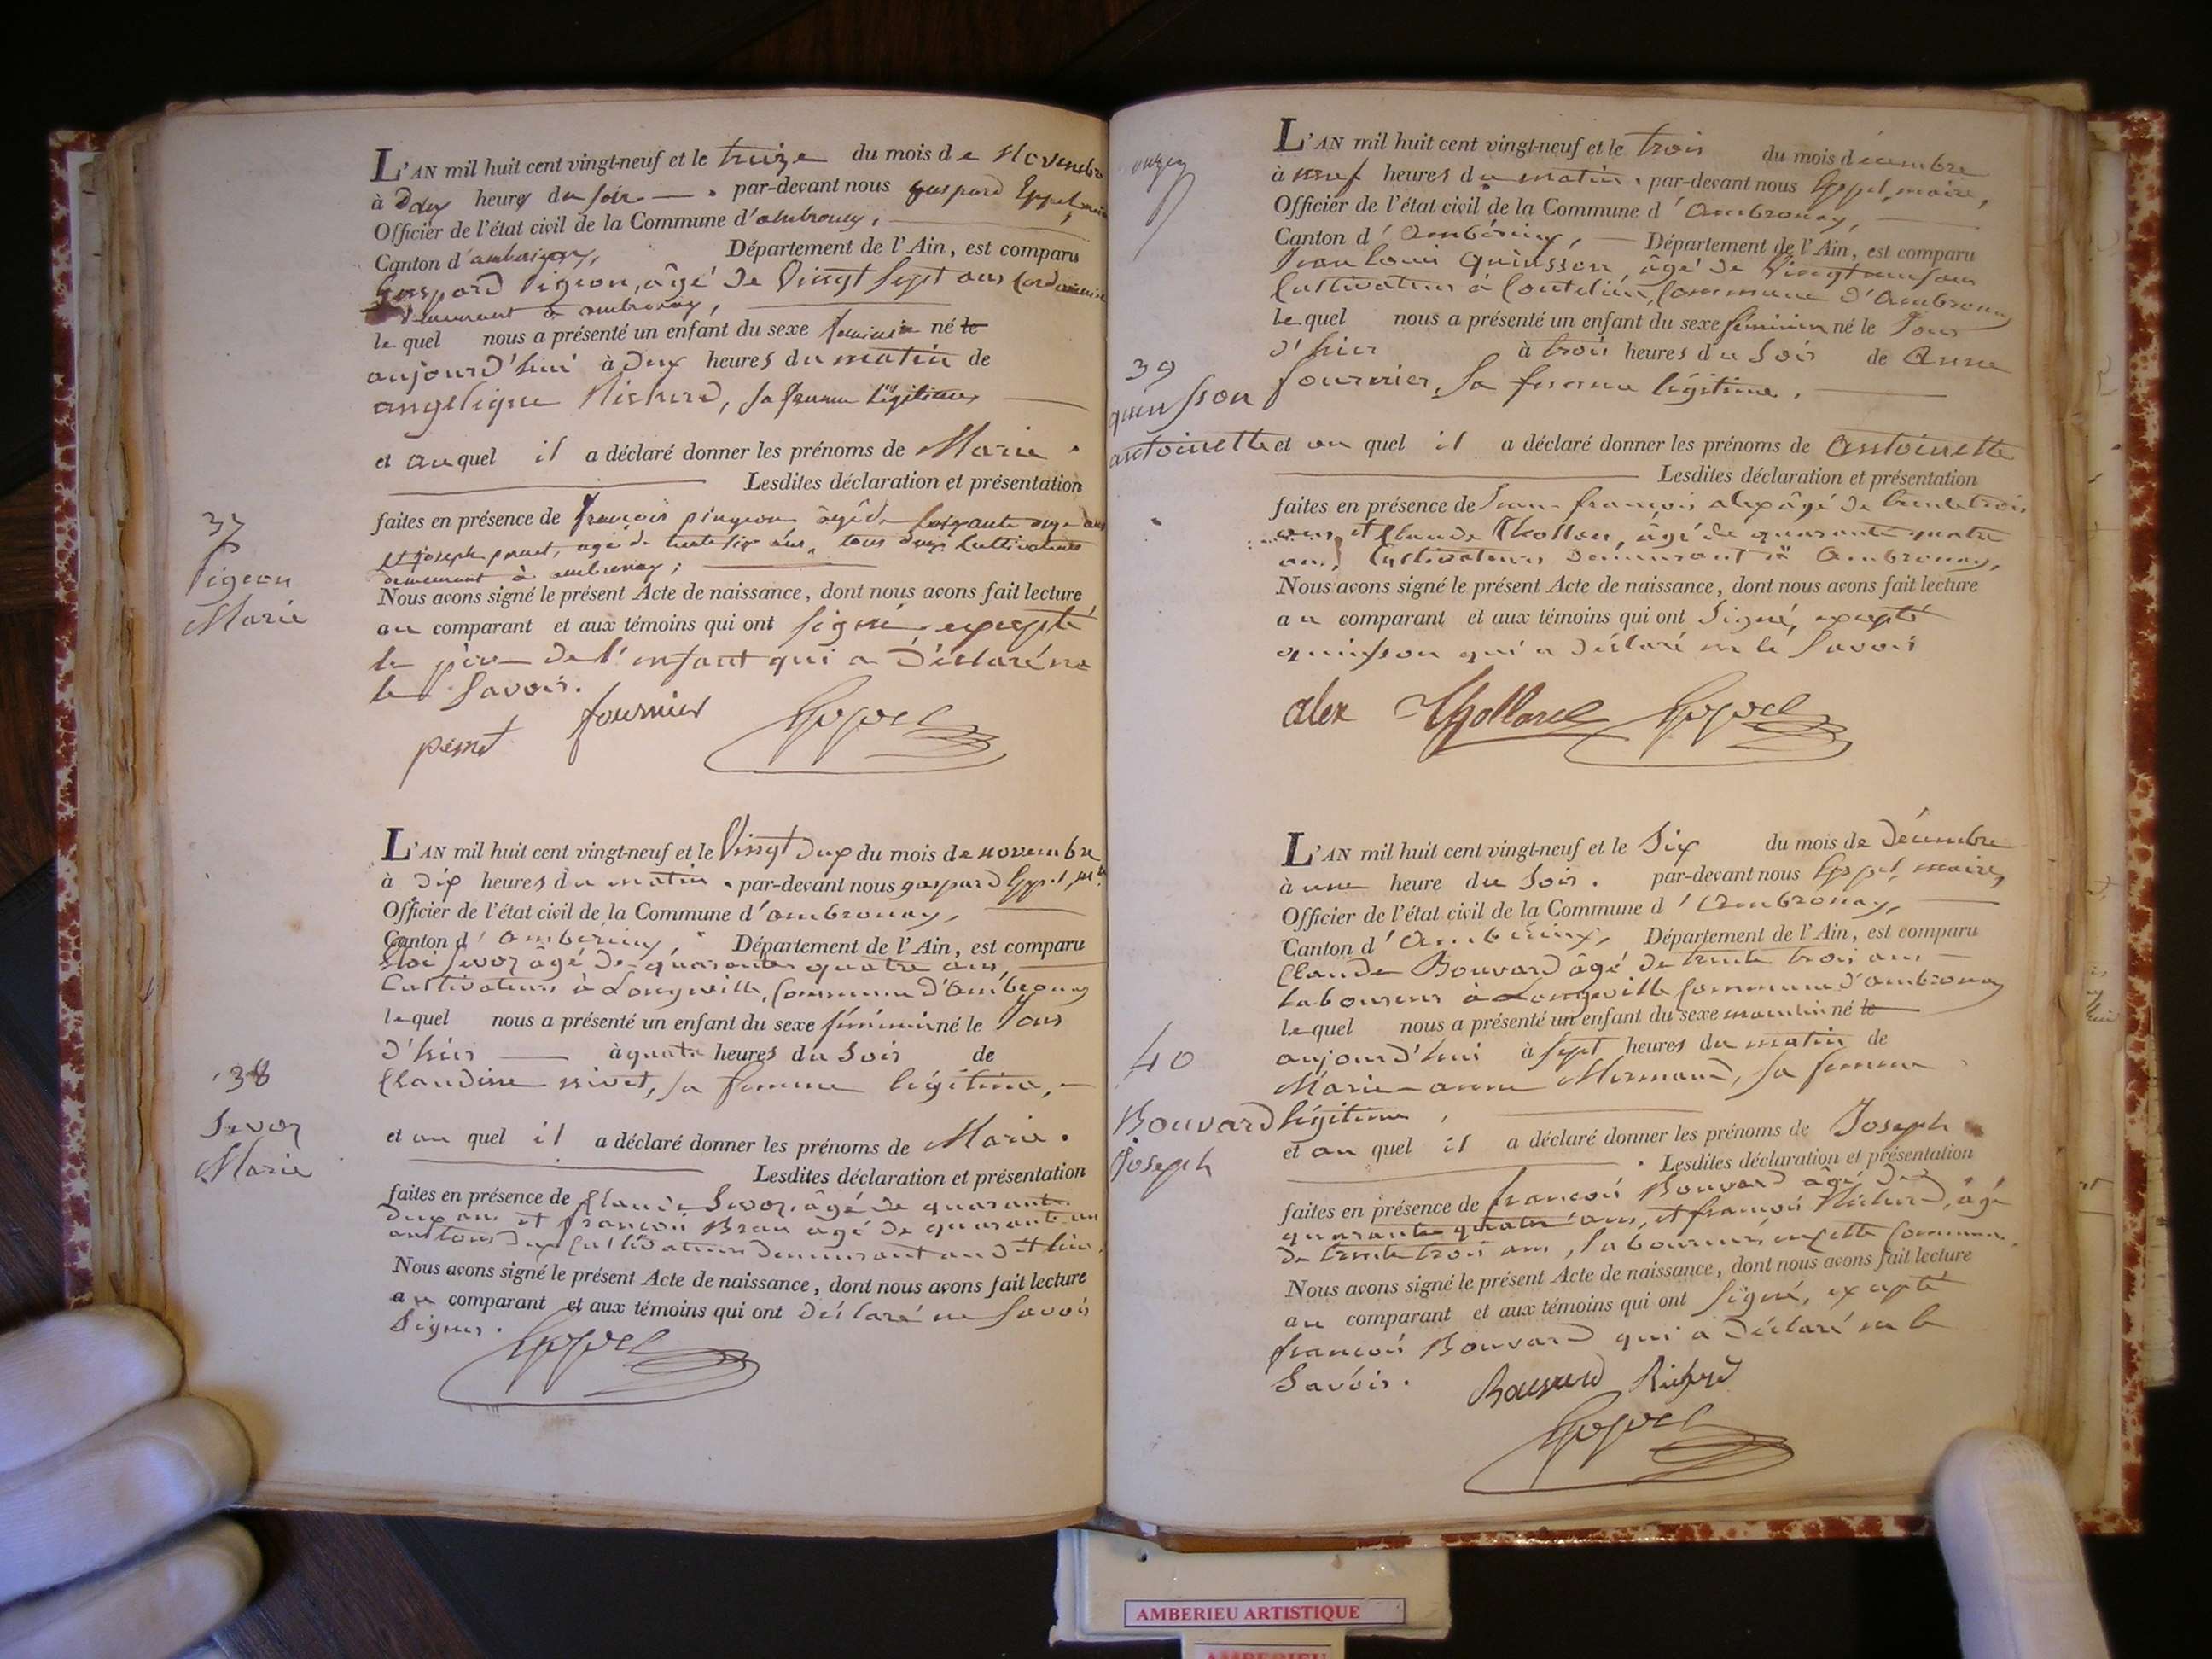 L'AN mil huit cent vingt-neuf et le treize du mois de Novembre
à deux heures du soir. par-devant nous gaspard Eppel, maire
Officier de l'état civil de la Commune d'ambronay,
Canton d'amberieux, Département de l'Ain, est comparu
Gaspard Pigeon, âgé de vingt sept ans Cordonnier
demeurant à ambronay,
lequel nous a présenté un enfant du sexe feminin né le
aujourd'hui à deux heures du matin de
angelique Richerd, sa femme légitime
et auquel il a déclaré donner les prénoms de Marie.
Lesdites déclaration et présentation
37
Pigeon
Marie
faites en présence de françois age de soixante ans
et joseph perret, agé de trente six ans, tous deux cultivateurs
demeurant à ambronay;
Nous avons signé le présent Acte de naissance, dont nous avons fait lecture
au comparant et aux témoins qui ont signé excepté
le père de l'enfant qui a déclaré ne
le savoir.
perret fournier Eppel
L'AN mil huit cent vingt-neuf et le Vingt deux du mois de novembre
à dix heures du matin. par-devant nous gaspard Eppel, m.re
Officier de l'état civil de la Commune d'ambronay,
Canton d'Ambérieux, Département de l'Ain, est comparu
âgé de quarante quatre ans,
Cultivateur à Longeville, Commune d'Ambronay
lequel nous a présenté un enfant du sexe féminin né le Jour
d'hier à quatre heures du soir de
Claudine nivet, sa femme légitime,
38
Sevoz
Marie
et au quel il a déclaré donner les prénoms de Marie.
Lesdites déclaration et présentation
faites en présence de Claude Sevoz, âgé de quarante
deux ans et françois Brau âgé de quarante un
ans tous deux Cultivateurs demeurant audit lieu.
Nous avons signé le présent Acte de naissance, dont nous avons fait lecture
au comparant et aux témoins qui ont déclaré ne savoir
signer.
Eppel
L'AN mil huit cent vingt-neuf et le trois du mois décembre
à neuf heures du matin. par-devant nous Eppel, maire,
Officier de l'état civil de la Commune d'Ambronay,
Canton d'Ambérieux, Département de l'Ain, est comparu
Jean Louis Quinsson, âgé de Vingt neuf ans
Cultivateur à Coutelieu, Commune d'Ambronay
lequel nous a présenté un enfant du sexe féminin né le Jour
d'hier à trois heures du Soir de Anne
fournier, sa femme légitime.
39
quinsson
antoinette
et au quel il a déclaré donner les prénoms de Antoinette
Lesdites déclaration et présentation
faites en présence de Jean-françois alex âgé de trente trois
ans, et Claude Thollon, âgé de quarante quatre
ans, Cultivateurs demeurant à Ambronay,
Nous avons signé le présent Acte de naissance, dont nous avons fait lecture
au comparant et aux témoins qui ont Signé, excepté
quinsson qui a déclaré ne le Savoir
alex Eppel
L'AN mil huit cent vingt-neuf et le Six du mois de Décembre
à une heure du Soir. par-devant nous Eppel, maire,
Officier de l'état civil de la Commune d'Ambronay,
Canton d'Ambérieux, Département de l'Ain, est comparu
Claude Bouvard âgé de trente trois ans
laboureur à Longeville Commune d'ambronay
lequel nous a présenté un enfant du sexe masculin né le
aujourd'hui à sept heures du matin de
Marie-anne Mermand, sa femme
légitime,
40
Bouvard
Joseph
et au quel il a déclaré donner les prénoms de Joseph
Lesdites déclaration et présentation
faites en présence de françois Bouvard âgé de
quarante quatre ans, et françois Richerd, âgé
de trente trois ans, laboureurs, en cette Commune.
Nous avons signé le présent Acte de naissance, dont nous avons fait lecture
au comparant et aux témoins qui ont signé, excepté
françois Bouvard qui a déclaré ne le
Savoir.
Bouvard Richerd
Eppel
AMBERIEU ARTISTIQUE
AMBERIEU